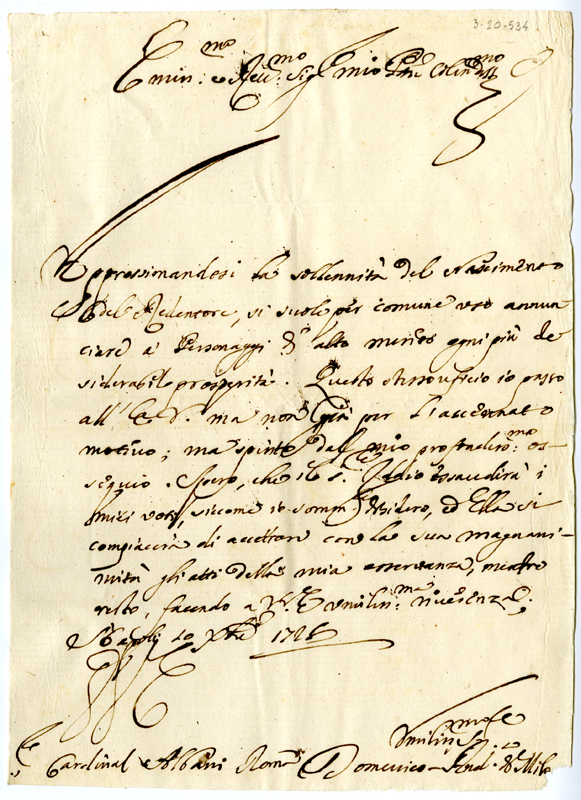 3-20-534
Emin.mo e Rev.mo Sig.r mio P̃rone Colend.mo
Approssimandosi la sollennità del Nascimento
del Redentore, si suole per comune uso annun
ciare a' Personaggi d'alto merito ogni più de
siderabile prosperità. Questo stesso ufficio io passo
all' E. V. ma non già per l'accennato
motivo; ma spinto dal mio profondiss.mo os-
sequio. Spero, che il S. Iddio essaudirà i
miei voti, siccome io somm.te desidero, ed Ella si
compiaccia di accettare con la sua magnani-
mità gli atti della mia osservanza, mentre
resto, facendo a V. E. umilis.ma riverenza.
Napoli 20 Xbre 1726
V E
Umiliss.mo
Sig. Cardinal Albani Roma Domenico